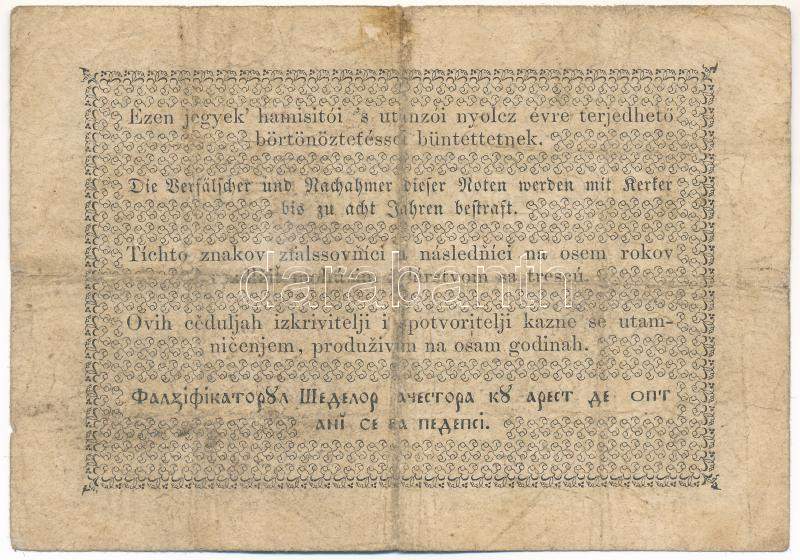 Ezen jegyek' hamisitói 's utánzói nyolcz évre terjedhető
börtönöztetéssel büntettetnek.
Die Verfälscher und Nachahmer dieser Noten werden mit Kerker
bis zu acht Jahren bestraft.
Tíchto znakov zfalssovňíci a následňíci na osem rokov
na trescú.
Ovih cèduljah izkrivitelji i spotvoritelji kazne se utam-
ničenjem, produživim na osam godinah.
Фалꙋіфікаторꙋл Шеделор ачестора кꙋ арест де опт
анї се ва педепсі.
darabanth